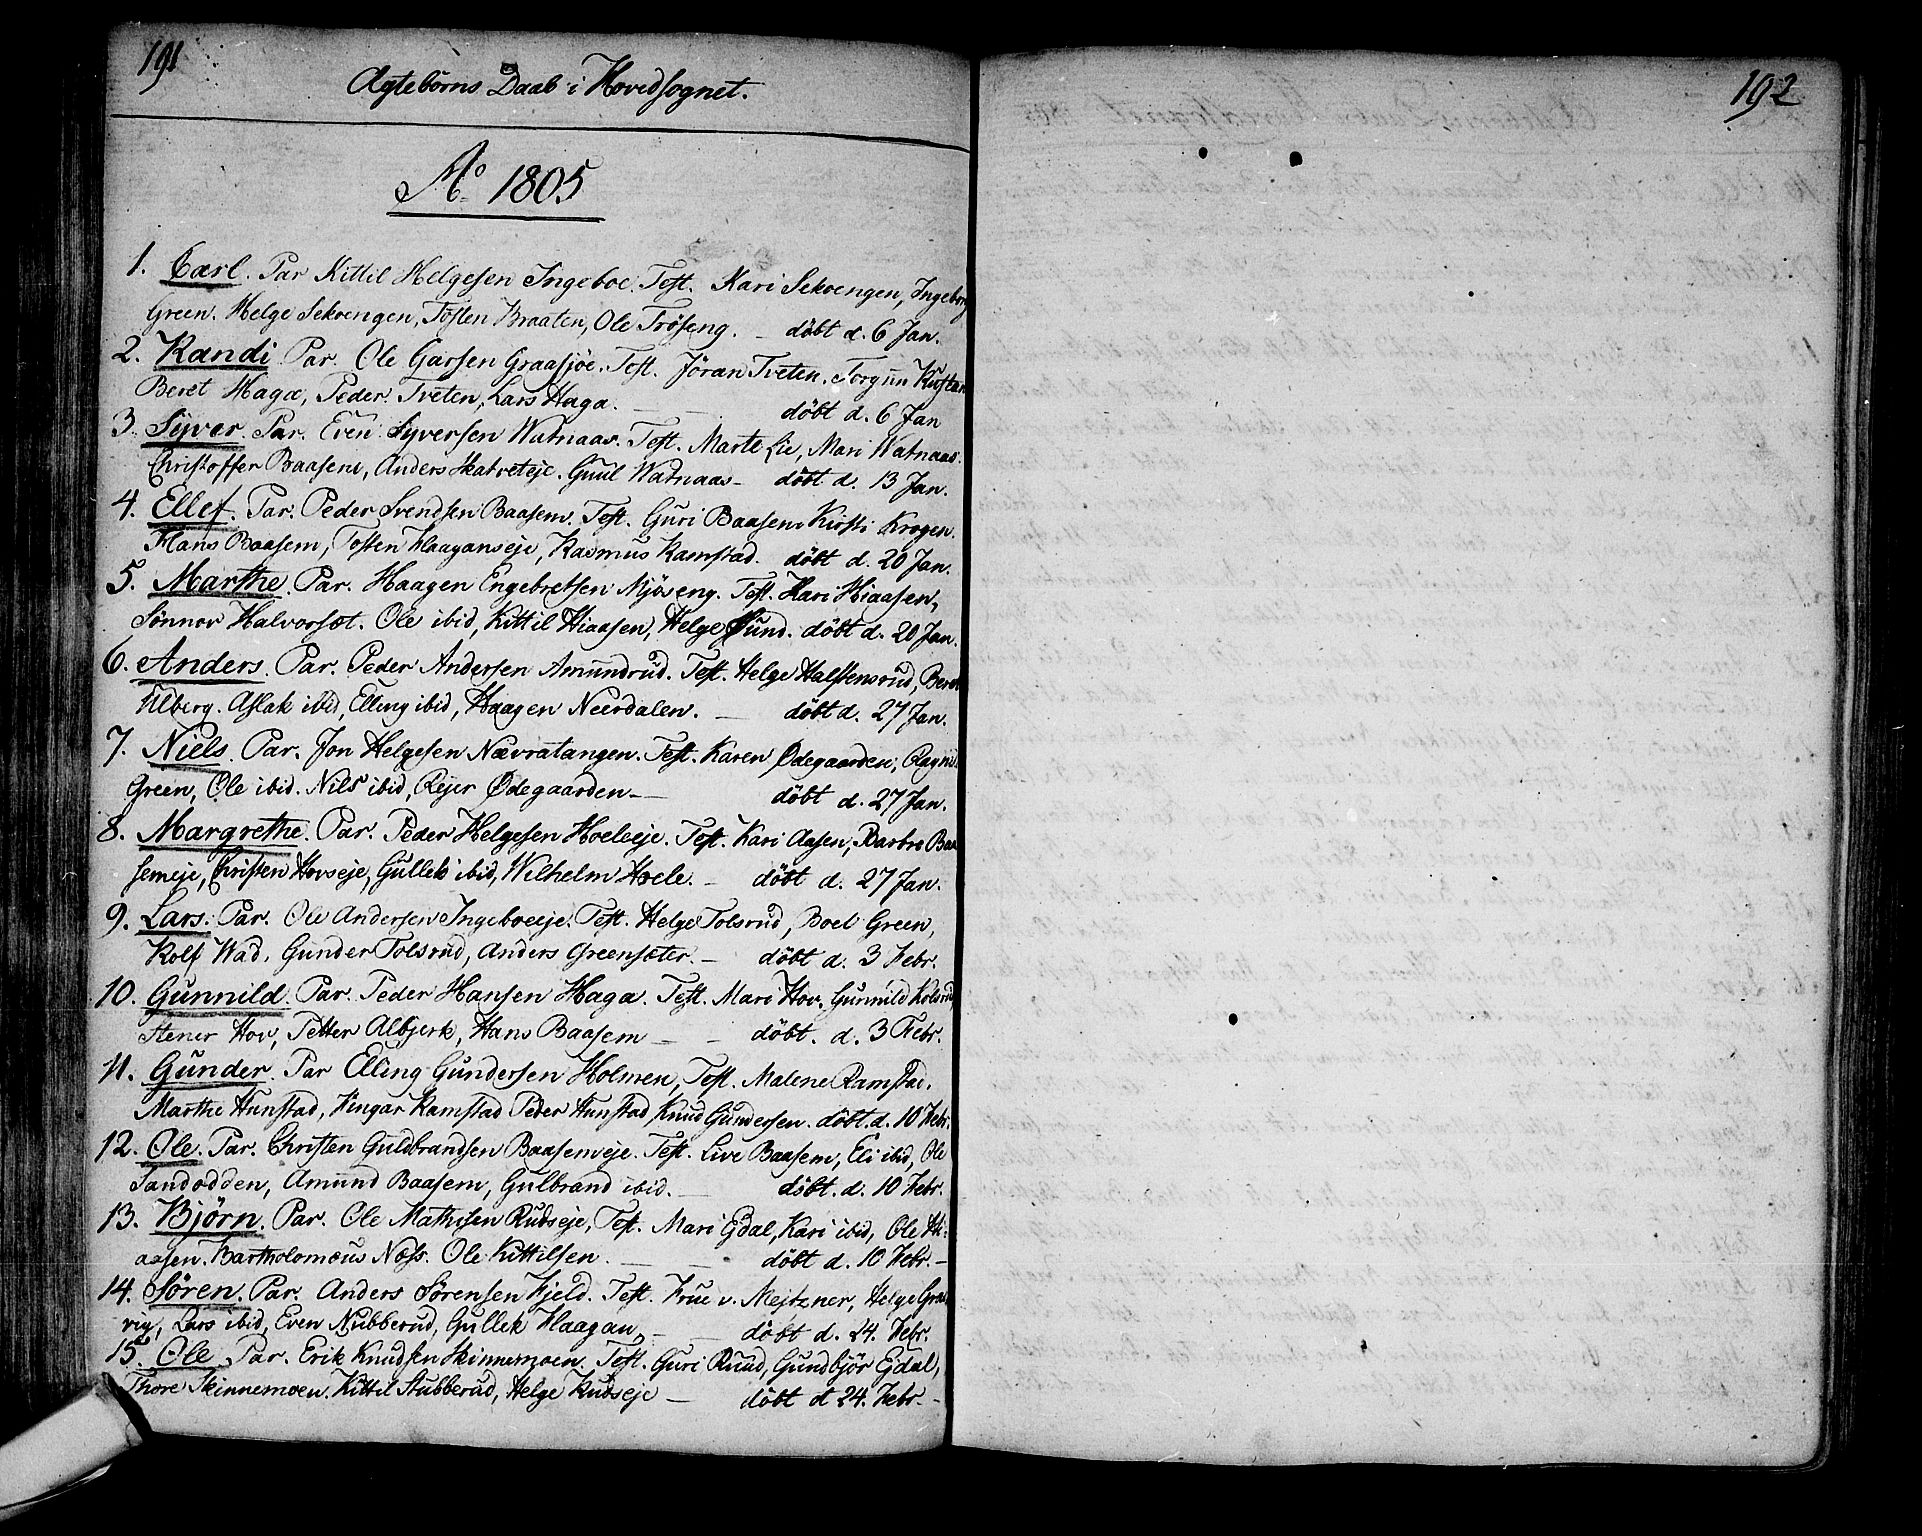 191
Ægtebörns Daab i Hovedsognet.
Ao 1805
1. Carl. Par Kittil Helgesen Ingeboe. Test. Kari Sekoengen, Ingeborg
Green. Helge Sekoengen, Tosten Braaten, Ole Tröseng. — döbt d. 6 Jan.
2. Randi Par. Ole Garsen Graasjöe. Test. Jöran Tveten. Torgun
Beret Haga, Peder Tveten, Lars Haga. — döbt d. 6 Jan
3. Syver. Par. Even Syversen Watnaas. Test. Marte Lie, Mari Watnaas.
Christoffer Baasem, Anders Skatveteje. Guul Watnaas — döbt d. 13 Jan.
4. Ellef. Par. Peder Svendsen Baasem. Test. Guri Baasem Kirsti Krogen.
Hans Baasem, Tosten Haaganseje, Rasmus Ramstad. döbt d. 20 Jan.
5. Marthe. Par. Haagen Engebretsen Mjöseng. Test. Kari Hiaasen,
Sönnov Halvorsæt. Ole ibid, Kittil Hiaasen, Helge Sund. döbt d. 20 Jan.
6. Anders. Par. Peder Andersen Amundrud. Test. Helge Halstensrud, Beret
Ulberg. Aslak ibid, Elling ibid, Haagen Neerdalen. — döbt d. 27 Jan.
7. Niels. Par. Jon Helgesen Nævratangen. Test. Karen Ødegaarden, Ragnil
Green, Ole ibid. Nils ibid, Rejer Ødegaarden — döbt d. 27 Jan.
8. Margrethe. Par. Peder Helgesen Hoeleeje. Test. Kari Aasen, Barbro Baa
semeje, Christen Hovseje, Gullek ibid, Wilhelm Hoele. — döbt d. 27 Jan.
9. Lars. Par. Ole Andersen Ingeboeeje. Test. Helge Tolsrud, Boel Green,
Rolf Wad, Gunder Tolsrud, Anders Greensæter. — döbt d. 3 Febr.
10. Gunnild. Par. Peder Hansen Haga. Test. Mari Hov, Gunnild Kolsrud
Stener Hov, Petter Albjerk, Hans Baasem — — döbt. d. 3 Febr.
11. Gunder. Par Elling Gundersen Holmen, Test. Malene Ramstad.
Marthe Hunstad, Hingar Ramstad Peder Hunstad Knud Gundersen. döbt. d. 10 Febr.
12. Ole. Par. Christen Guldbrandsen Baasemeje. Test. Live Baasem, Eli ibid, Ole
Sandodden, Amund Baasem, Gulbrand ibid. — döbt. d. 10 Febr.
13. Björn. Par. Ole Mathisen Rudseje, Test. Mari Ejdal, Kari ibid, Ole Hi-
aasen. Bartholomæus Næss. Ole Kittilsen. — — döbt d. 10 Febr. —
14. Sören. Par. Anders Sörensen Fjeld. Test. Frue v. Mejtzner, Helge Gra
vig, Lars ibid, Even Nubberud, Gullek Haagan. — — döbt d. 24. Febr.
15. Ole. Par. Erik Knudsen Skinnemoen. Test. Guri Ruud, Gundbjör Ejdal,
Thore Skinnemoen. Kittil Stubberud, Helge Rudseje — döbt d 24. Febr. —
192